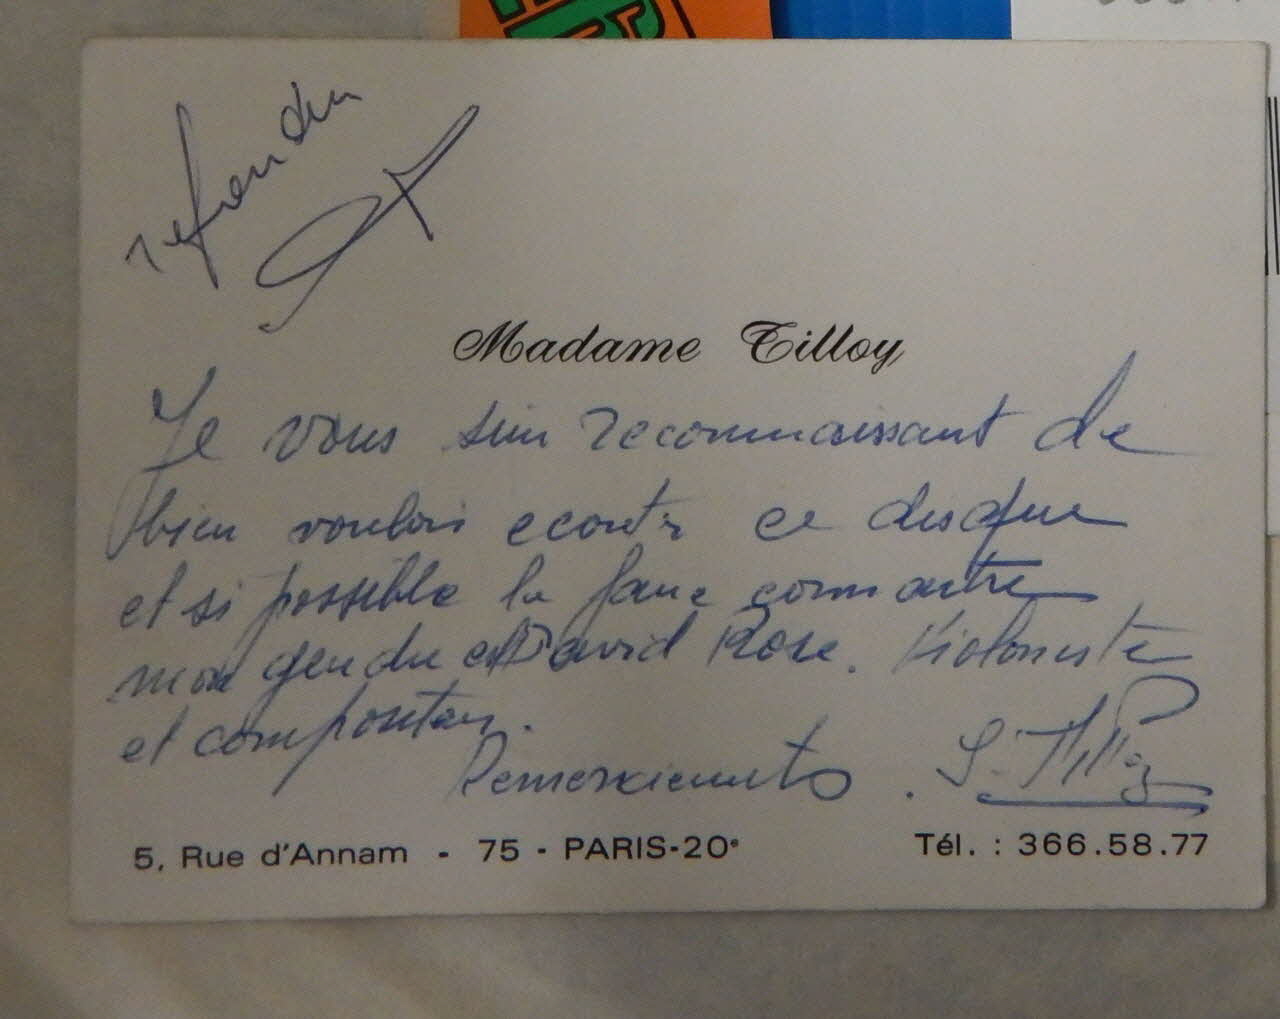 Madame Tilloy
Je vous suis reconnaissant de
bien vouloir ecouter ce disque
et si possible le faire connaitre
mon gendre est David Rose. Violoniste
et compositeur.
Remerciements. S. Tilloy
5, Rue d'Annam - 75 - PARIS-20e Tél. : 366.58.77